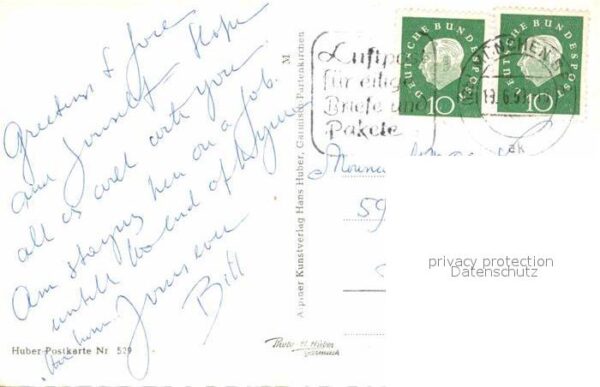 Greetings & Love
and Yourself Hope
all is well with you
Am staying here on a job.
untill the end of
Yours ever
Bill
Huber-Postkarte Nr 529
Alpiner Kunstverlag Hans Huber, Garmisch-Partenkirchen
M
Luftpost
für eilige
Briefe und
Pakete
DEUTSCHE BUNDESPOST
10
DEUTSCHE BUNDESPOST
10
MÜNCHEN
19.6.59
ak
59
privacy protection
Datenschutz
Photo H. Huber
Garmisch